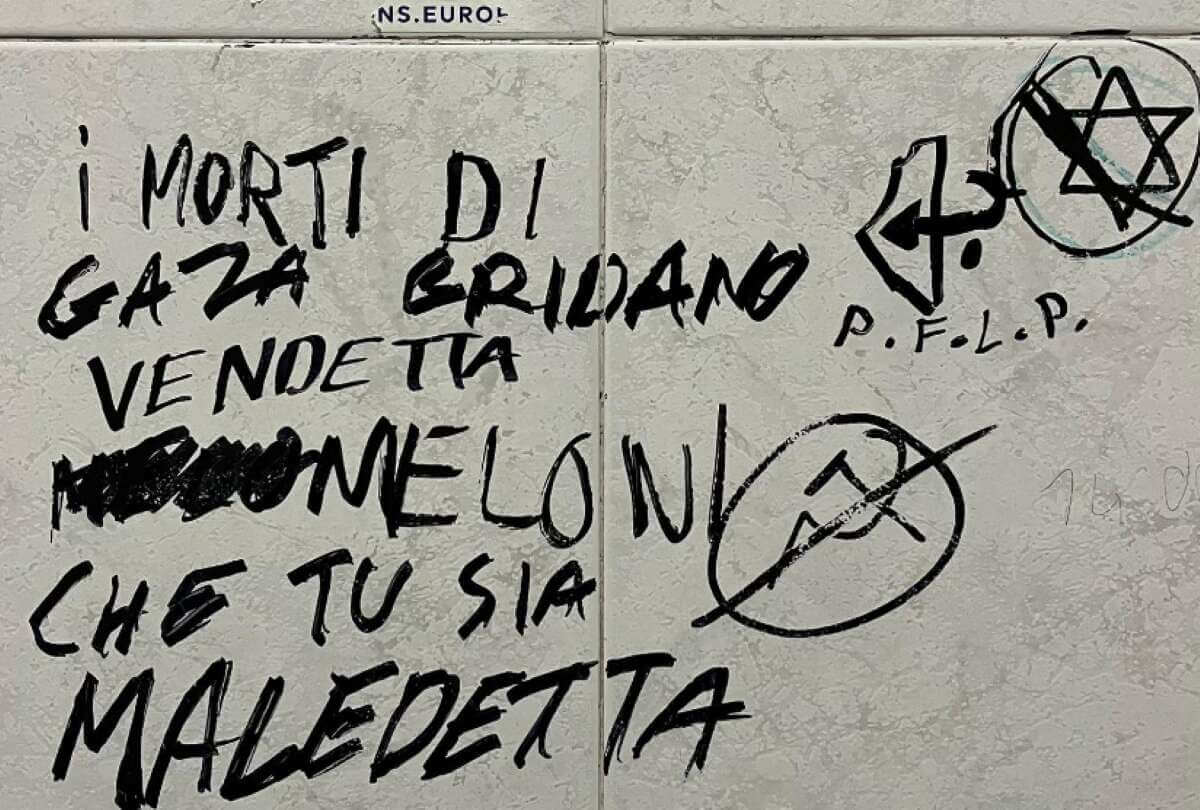 NS.EURO
i MORTI DI
GAZA GRIDANO
VENDETTA
MELONI
CHE TU SIA
MALEDETTA
P.F.L.P.